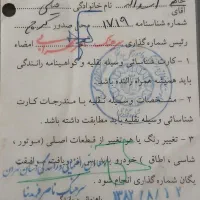 خانم
آقای نام خانوادگی
شماره شناسنامه ۱۷۱۹ محل صدور
رئیس شماره گذاری امضاء
۱ - کارت شناسائی وسیله نقلیه و گواهینامه رانندگی
باید همیشه همراه راننده باشد.
۲ - مشخصات وسیله نقلیه با مندرجات کارت
شناسائی وسیله نقلیه باید مطابقت داشته باشد.
۳ - تغییر رنگ یا هر تغییر از قطعات اصلی (موتور،
شاسی، اطاق) خودرو باید پس از دریافت موافقت
یگان شماره گذاری انجام شود.
سرهنگ ناصر